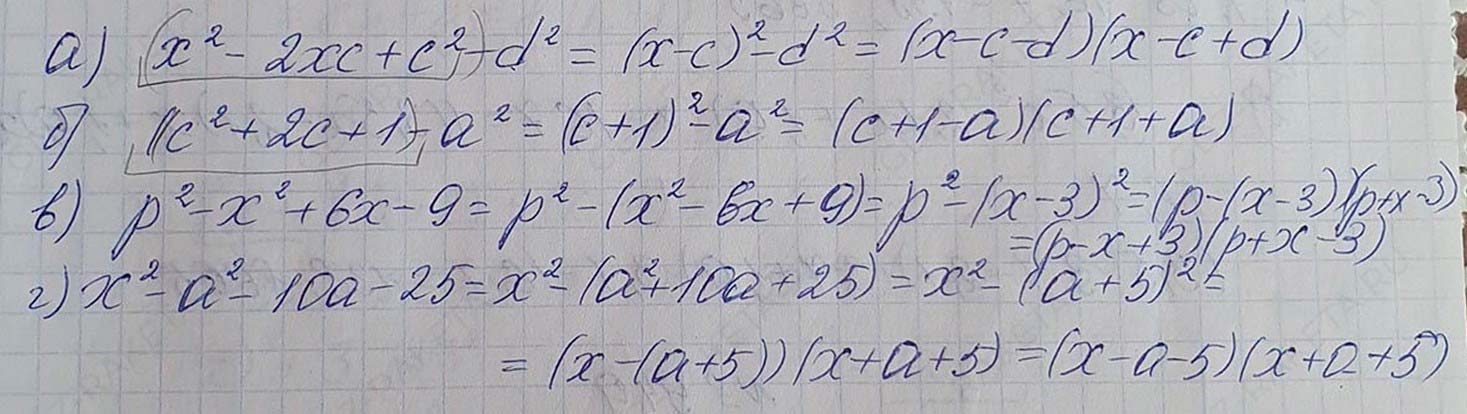 а) (x² - 2xc + c²) - d² = (x-c)² - d² = (x-c-d)(x-c+d)
б) (c² + 2c + 1) - a² = (c+1)² - a² = (c+1-a)(c+1+a)
в) p² - x² + 6x - 9 = p² - (x² - 6x + 9) = p² - (x-3)² = (p-(x-3))(p+x-3)
= (p-x+3)(p+x-3)
г) x² - a² - 10a - 25 = x² - (a² + 10a + 25) = x² - (a+5)² =
= (x-(a+5))(x+a+5) = (x-a-5)(x+a+5)